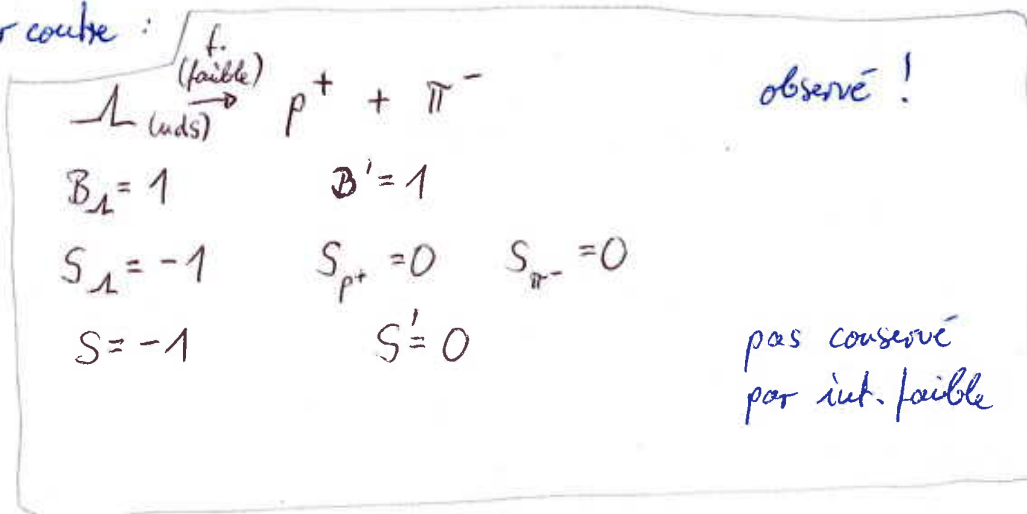 r contre :
f.
(faible)
Λ (uds) → p⁺ + π⁻ observé !
B_Λ = 1 B' = 1
S_Λ = -1 S_p⁺ = 0 S_π⁻ = 0
S = -1 S' = 0
pas conservé
par int. faible